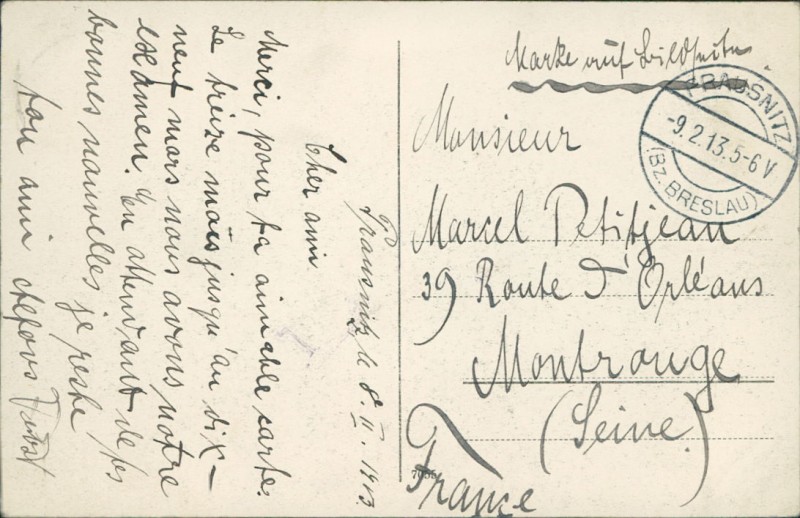 Prausnitz le 8. II. 1913.
Cher ami
Merci, pour ta aimable carte.
Le treize mars jusqu'au dix-
neuf mars nous avons notre
examen. En attendant de tes
bonnes nouvelles je reste
ton ami Alfons
Marke auf Bildseite
PRAUSNITZ
-9.2.13.5-6V
(BZ. BRESLAU)
Monsieur
Marcel Petitjean
39 Route d'Orléans
Montrouge
(Seine)
France